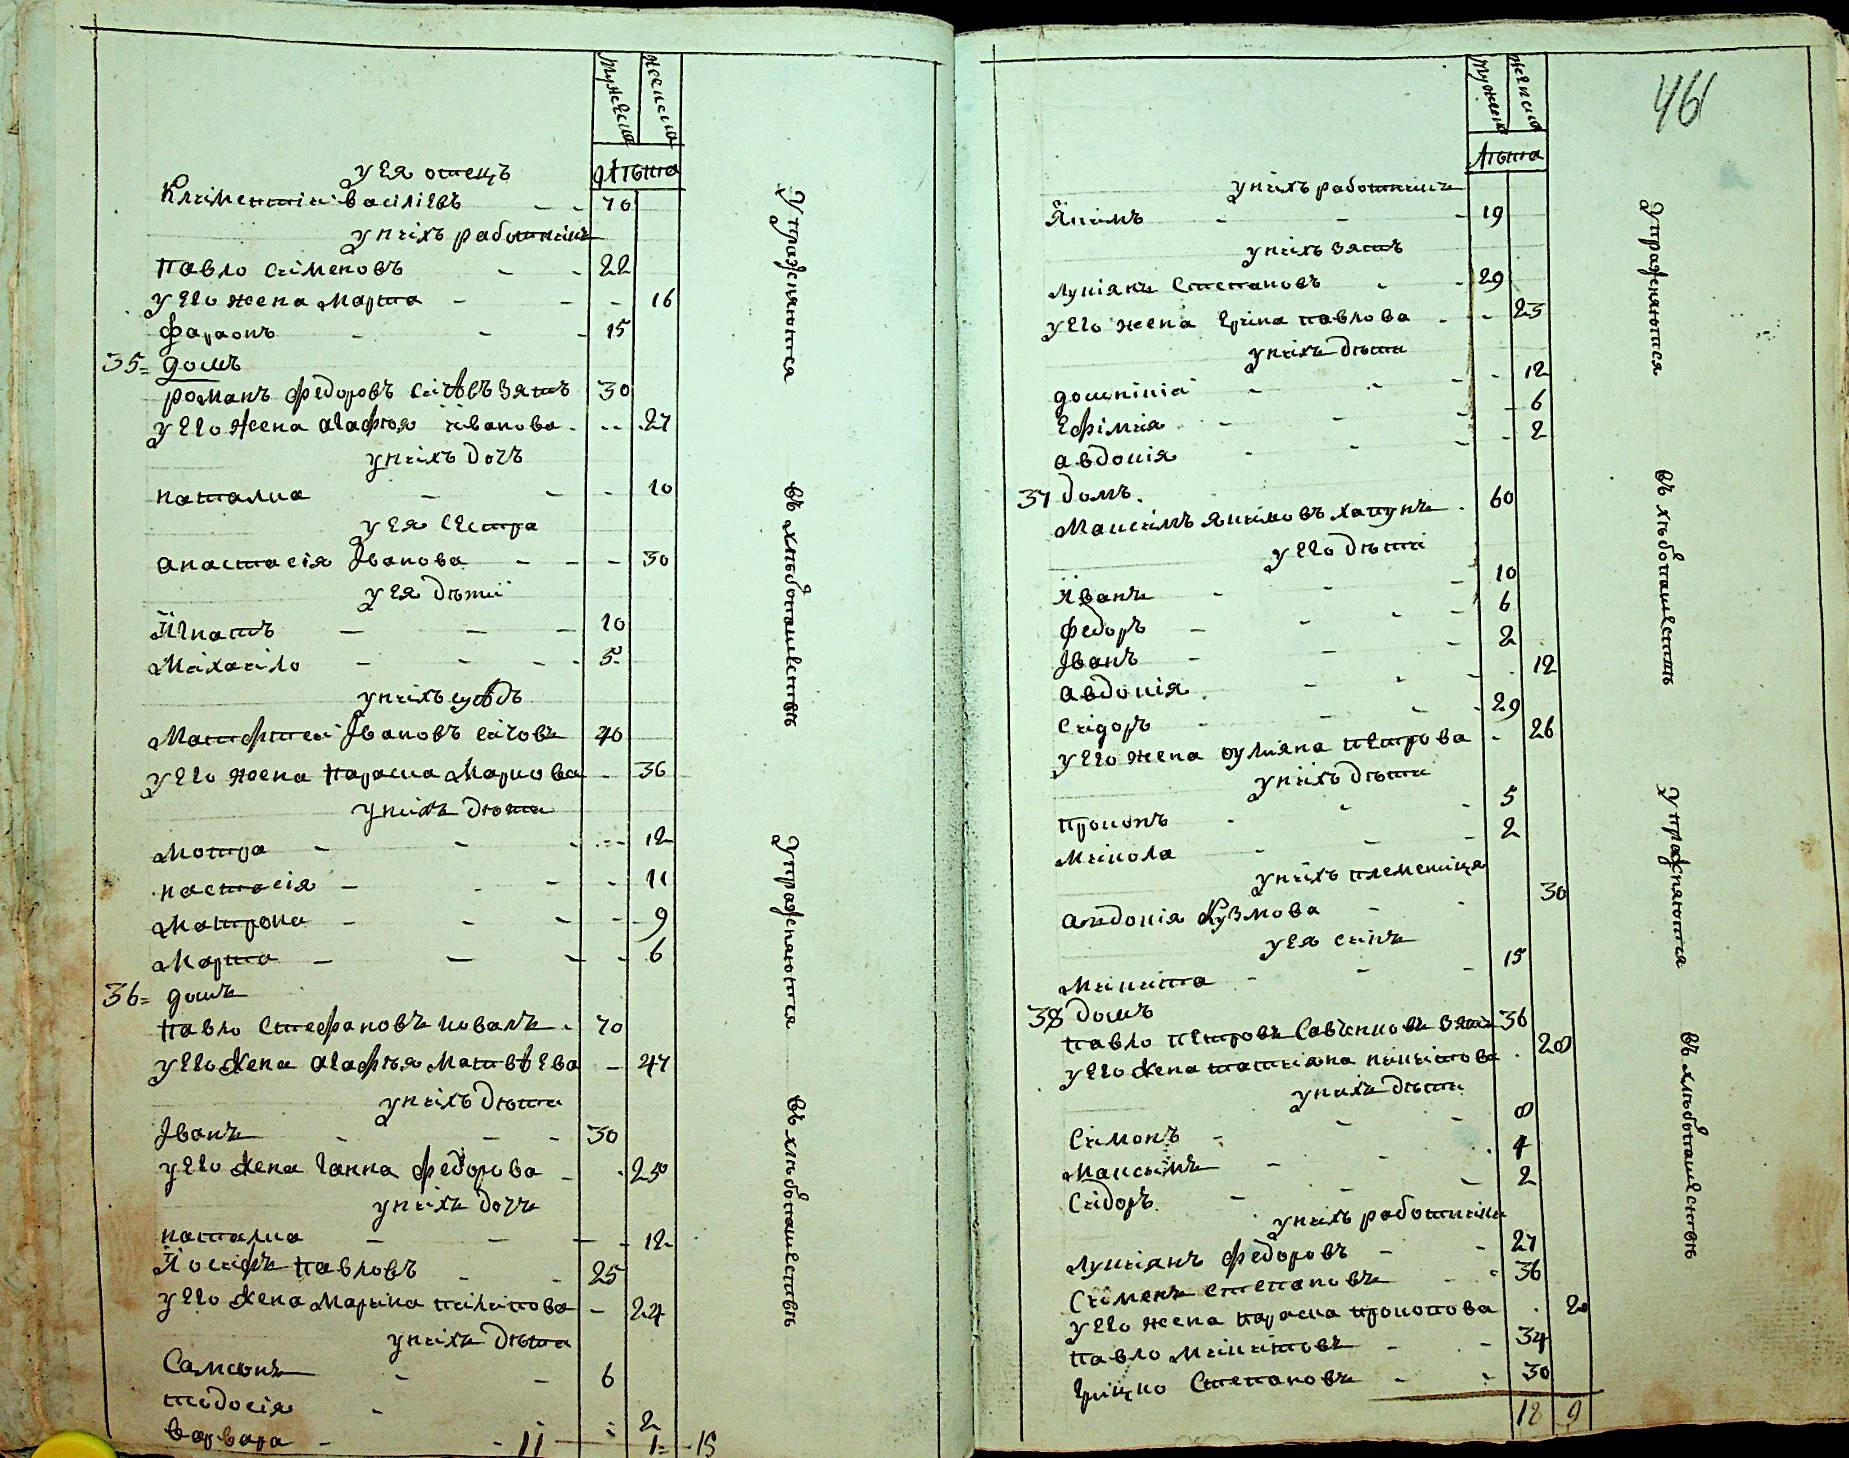 мужеска
женска
лѣта
у ея отецъ
Климентіи Васіліевъ - - 70
у нихъ работникъ
Павло Сіменовъ - - 22
у его жена Марта - - - 16
Фараонъ - - - 15
35= домъ
Романъ Федоровъ Сичовъ зять 30
у его жена Агафія Іванова - -- 27
у нихъ дочъ
Наталка - - - 10
у ея сестра
Анастасія Іванова - - - 30
у ея дѣтиі
Ігнатъ - - - 10
Міхаіло - - - - 5
у нихъ сусѣдъ
Матфтеи Івановъ Сичовъ 40
у его жена Параска Маркова - 36
у нихъ дѣти
Мотра - - - 12
Настасія - - - - 11
Матрона - - - - 9
Марта - - - - 6
36= домъ
Павло Стефановъ Коваль - 70
у его жена Агафія Матвѣева - 47
у нихъ дѣти
Іванъ - - - 30
у его жена Ганна Федорова - - 25
у нихъ дочъ
Наталка - - - - 12
Іосифъ Павловъ - - 25
у его жена Марина Пилипова - 24
у нихъ дѣти
Самсонъ - - 6
Тодосія - - 2
Варвара - - 1
11 - 15
Упражняются
въ хлѣбопашествѣ
Упражняются
въ хлѣбопашествѣ
46
мужеска
женска
лѣта
у нихъ работникъ
Якимъ - - - 19
у нихъ зять
Лукіянъ Степановъ - - 29
у его жена Ірина Павлова - - 23
у нихъ дѣти
Домникіа - - - - 12
Ефімія - - - - 6
Авдокія - - - - 2
37 домъ
Максимъ Якимовъ Хапунъ - 60
у его дѣти
Іванъ - - - 10
Федоръ - - - - 6
Іванъ - - - 2
Авдокія - - - - 12
Сидоръ - - - - 29
у его жена Оуляна Петрова - 26
у нихъ дѣти
Прокопъ - - - 5
Микола - - - 2
у нихъ племеніца
Авдокія Кузмова - - 30
у ея синъ
Микита - - - 15
38 домъ
Павло Петровъ Савченковъ зять 36
у его жена Татияна Никитова - 28
у нихъ дѣти
Симонъ - - - 8
Максимъ - - - 4
Сидоръ - - - 2
у нихъ работники
Лукиянъ Федоровъ - - 27
Сименъ Степановъ - - 36
у его жена Параска Прокопова - 20
Павло Микитовъ - - 34
Грицко Степановъ - - 30
18 9
Упражняются
въ хлѣбопашествѣ
Упражняются
въ хлѣбопашествѣ